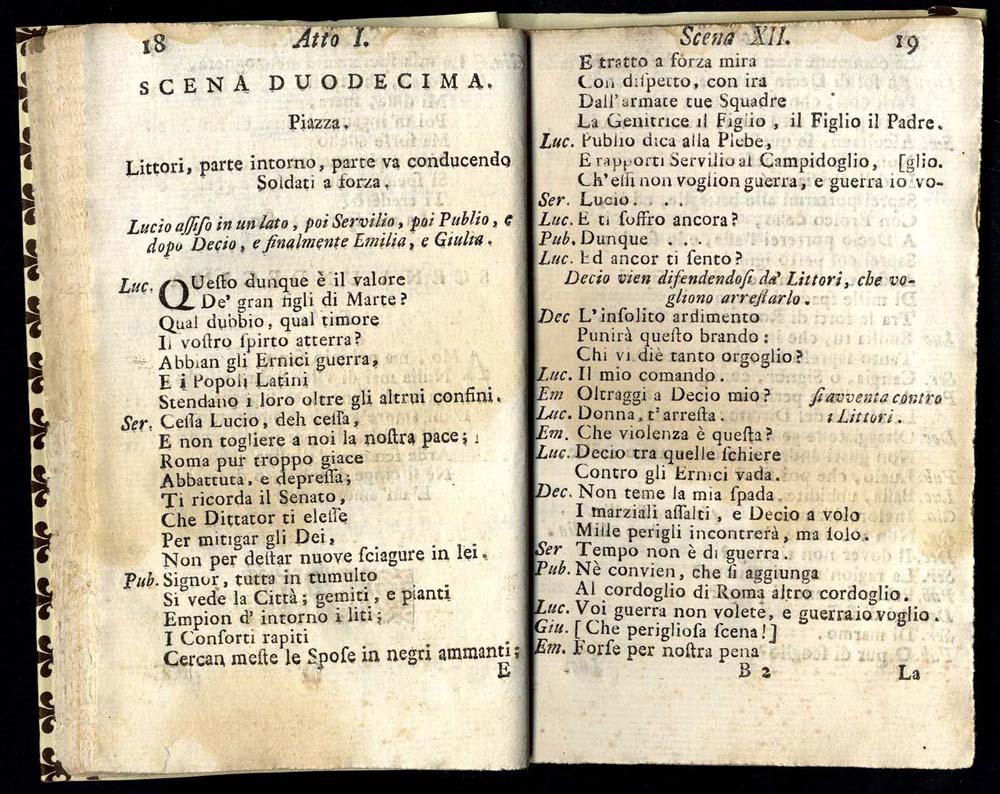 18 Atto I.
SCENA DUODECIMA.
Piazza.
Littori, parte intorno, parte va conducendo
Soldati a forza.
Lucio aſſiſo in un lato, poi Servilio, poi Publio, e
dopo Decio, e finalmente Emilia, e Giulia.
Luc. QUeſto dunque è il valore
De' gran figli di Marte?
Qual dubbio, qual timore
Il voſtro ſpirto atterra?
Abbian gli Ernici guerra,
E i Popoli Latini
Stendano i loro oltre gli altrui confini.
Ser. Ceſſa Lucio, deh ceſſa,
E non togliere a noi la noſtra pace;
Roma pur troppo giace
Abbattuta, e depreſſa;
Ti ricorda il Senato,
Che Dittator ti eleſſe
Per mitigar gli Dei,
Non per deſtar nuove ſciagure in lei.
Pub. Signor, tutta in tumulto
Si vede la Città; gemiti, e pianti
Empion d' intorno i liti;
I Conſorti rapiti
Cercan meſte le Spoſe in negri ammanti;
E
Scena XII. 19
E tratto a forza mira
Con diſpetto, con ira
Dall'armate tue Squadre
La Genitrice il Figlio, il Figlio il Padre.
Luc. Publio dica alla Plebe,
E rapporti Servilio al Campidoglio, [glio.
Ch'eſſi non voglion guerra, e guerra io vo-
Ser. Lucio. . .
Luc. E ti ſoffro ancora?
Pub. Dunque . . .
Luc. Ed ancor ti ſento?
Decio vien difendendoſi da' Littori, che vo-
gliono arreſtarlo.
Dec L'inſolito ardimento
Punirà queſto brando:
Chi vi diè tanto orgoglio?
Luc. Il mio comando.
Em Oltraggi a Decio mio? ſi avventa contro
Luc. Donna, t'arreſta. i Littori.
Em. Che violenza è queſta?
Luc. Decio tra quelle ſchiere
Contro gli Ernici vada.
Dec. Non teme la mia ſpada
I marziali aſſalti, e Decio a volo
Mille perigli incontrerà, ma ſolo.
Ser Tempo non è di guerra.
Pub. Nè convien, che ſi aggiunga
Al cordoglio di Roma altro cordoglio.
Luc. Voi guerra non volete, e guerra io voglio.
Giu. [Che periglioſa ſcena!]
Em. Forſe per noſtra pena
B 2 La